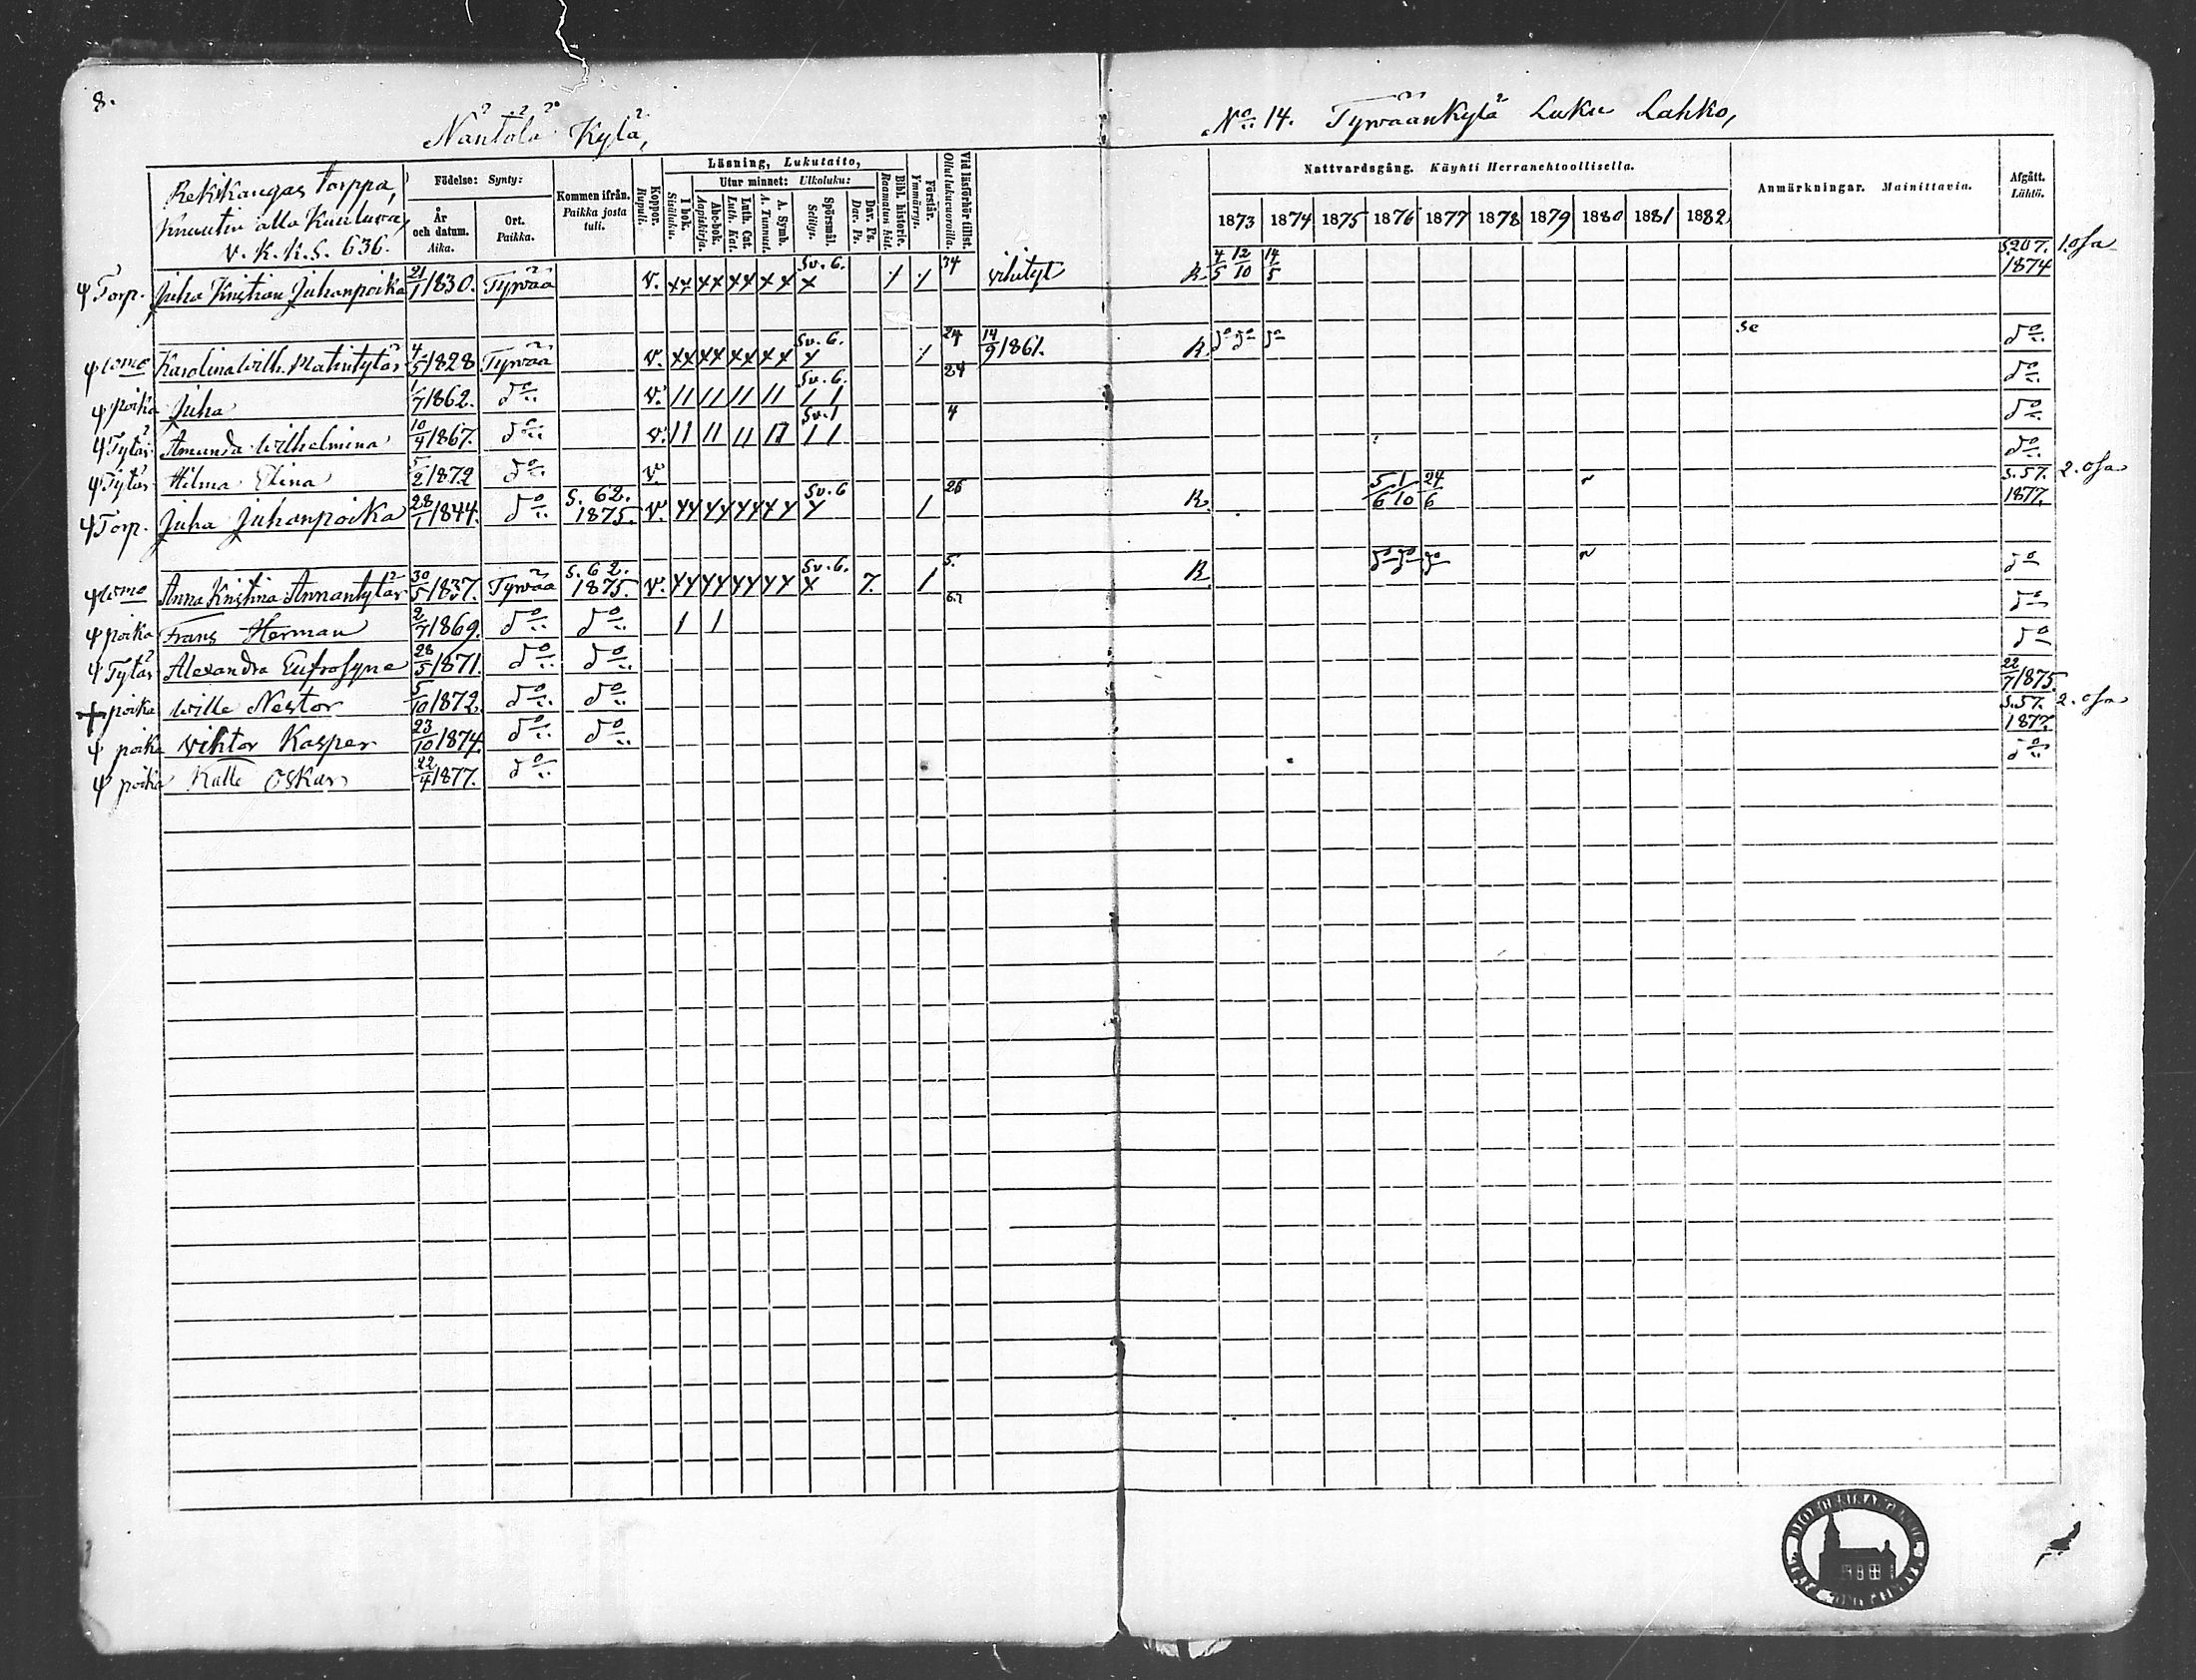 8.
Näntölä Kylä,
No 14. Tyrwäänkylä Luku Lahko,
Rekikangas torppa,
Knuutin alla Kuuluwa,
V. K. K. S. 636.
Födelse: Synty:
År och datum. Aika.
Ort. Paikka.
Kommen ifrån. Paikka josta tuli.
Koppor. Rupuli.
Läsning, Lukutaito,
I bok. Sisäluku.
Utur minnet: Ulkoluku:
Abc-bok. Aapiskirja.
Luth. Cat. Luth. Kat.
A. Symb. A. Tunnust.
Spörsmål. Selitys.
Dav. Ps. Dav. Ps.
Bibl. historie. Raamatun hist.
Förstår. Ymmärrys.
Vid läsförhör tillst. Ollut lukuvuoroilla.
Nattvardsgång. Käyhti Herranehtoollisella.
1873 1874 1875 1876 1877 1878 1879 1880 1881 1882
Anmärkningar. Mainittavia.
Afgått. Lähtö.
Torp. Juha Kristian Juhanpoika 21/1 1830. Tyrwää v. xx xx xx xx Sv. 6. x / / 34 vihityt R. 4/5 12/10 14/5 S.207. 1874 1. osa
Karolina Wilh. Matintytär 4/5 1828 Tyrwää v. xx xx xx xx Sv. 6. x / 24 14/9 1861. R. do do do do
poika Juha 1/7 1862. do v. 11 11 11 11 Sv. 6. 1 1 24 do
Tytär Amanda Wilhelmina 10/4 1867. do v. 11 11 11 11 Sv. 1 1 1 4 do
Tytär Hilma Elina 5/2 1872 do v. do
Torp. Juha Juhanpoika 28/1 1844. do S. 62. 1875. v. xx xx xx xx Sv. 6 x / 26 R. 5/6 1/10 24/6 S.57. 1877. 2. osa
Anna Kristina Annantytär 30/5 1837. Tyrwää S. 62. 1875. v. xx xx xx xx Sv. 6. x 7. / 5. R do do do do
poika Frans Herman 2/7 1869. do do 1 1 do
Tytär Alexandra Eufrosyne 28/5 1871. do do do
poika Wille Nestor 5/10 1872. do do 22/7 1875.
poika Wihtor Kasper 23/10 1874. do do S.57. 1877. 2. osa
poika Kalle Oskar 22/4 1877. do do